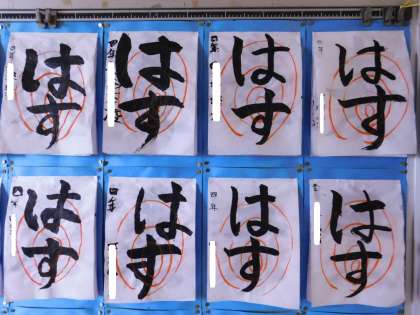 はす
四年
はす
四年
はす
四年
はす
四年
はす
四年
はす
四年
はす
四年
はす